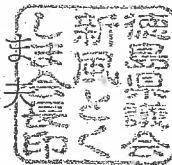 徳島県議会
新風とく
しま会長印